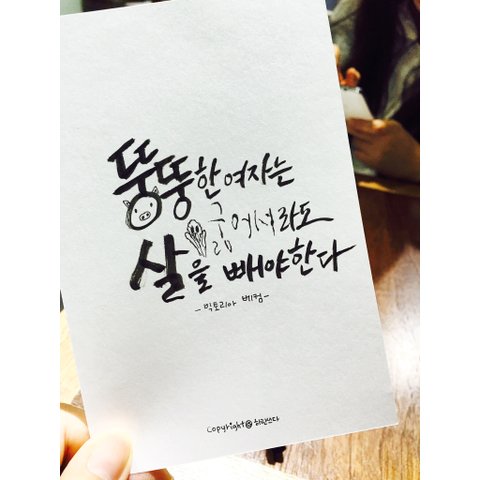 뚱뚱한 여자는
굶어서라도
살을 빼야한다
- 빅토리아 베컴 -
Copyright@ 하란쓰다